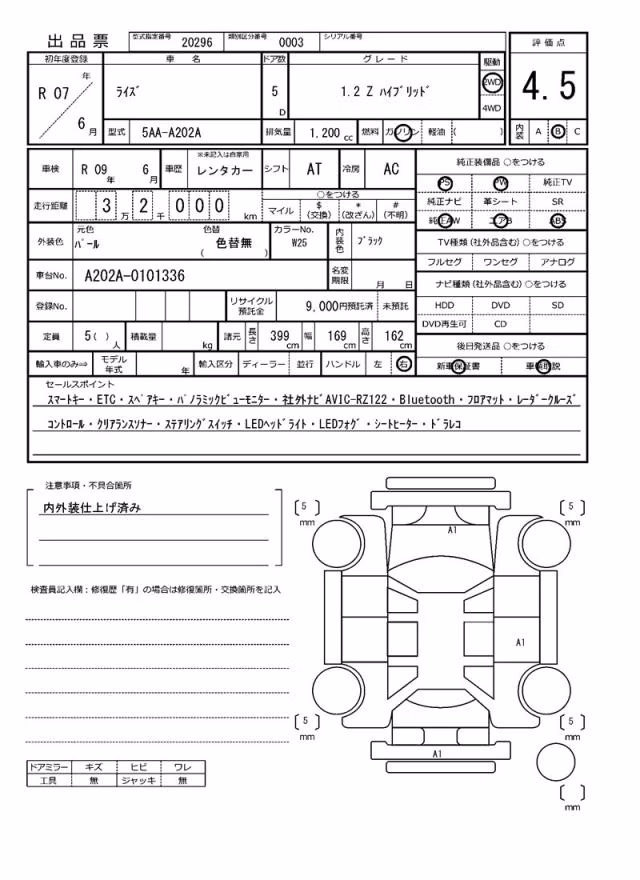 出品票
型式指定番号 20296 類別区分番号 0003 シリアル番号
評価点
4.5
内装 A B C
初年度登録 車名 ドア数 グレード 駆動
R 07 年 6 月
ﾗｲｽﾞ
5 D
1.2 Z ﾊｲﾌﾞﾘｯﾄﾞ
2WD
4WD
型式 5AA-A202A 排気量 1.200 cc 燃料 ガソリン 軽油 ( )
車検 R 09 年 6 月 車歴 ※未記入は自家用 レンタカー シフト AT 冷房 AC
走行距離 3 万 2 千 0 0 0 km
○をつける
マイル $ (交換) * (改ざん) # (不明)
外装色 元色 ﾊﾟｰﾙ 色替 ( 色替無 ) カラーNo. W25 内装色 ﾌﾞﾗｯｸ
車台No. A202A-0101336 名変期限 月 日
登録No. リサイクル預託金 9,000円預託済 未預託
定員 5( ) 人 積載量 kg 諸元 長さ 399 cm 幅 169 cm 高さ 162 cm
輸入車のみ⇒ モデル年式 年 輸入区分 ディーラー 並行 ハンドル 左 右
純正装備品 ○をつける
PS PW 純正TV
純正ナビ 革シート SR
純正AW エアB ABS
TV種類(社外品含む) ○をつける
フルセグ ワンセグ アナログ
ナビ種類(社外品含む) ○をつける
HDD DVD SD
DVD再生可 CD
後日発送品 ○をつける
新車保証書 車輌取説
セールスポイント
ｽﾏｰﾄｷｰ・ETC・ｽﾍﾟｱｷｰ・ﾊﾟﾉﾗﾐｯｸﾋﾞｭｰﾓﾆﾀｰ・社外ﾅﾋﾞAVIC-RZ122・Bluetooth・ﾌﾛｱﾏｯﾄ・ﾚｰﾀﾞｰｸﾙｰｽﾞ
ｺﾝﾄﾛｰﾙ・ｸﾘｱﾗﾝｽｿﾅｰ・ｽﾃｱﾘﾝｸﾞｽｲｯﾁ・LEDﾍｯﾄﾞﾗｲﾄ・LEDﾌｫｸﾞ・ｼｰﾄﾋｰﾀｰ・ﾄﾞﾗﾚｺ
注意事項・不具合箇所
内外装仕上げ済み
検査員記入欄：修復歴「有」の場合は修復箇所・交換箇所を記入
ドアミラー キズ ヒビ ワレ
工具 無 ジャッキ 無
[ 5 ] mm
[ 5 ] mm
A1
A1
[ 5 ] mm
[ 5 ] mm
A1
[ ] mm